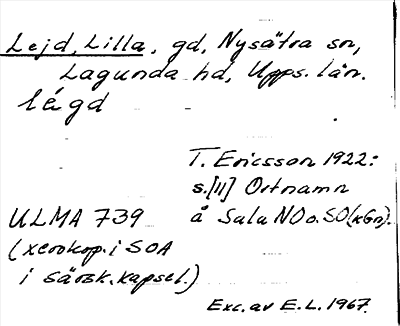 Lejd, Lilla, gd, Nysätra sn,
Lagunda hd, Upps. län.
légd
T. Ericsson 1922:
s.[11] Ortnamn
ULMA 739 å Sala NO o. SO (kGn).
(xerokop. i SOA
i särsk. kapsel.)
Exc. av E.L. 1967.